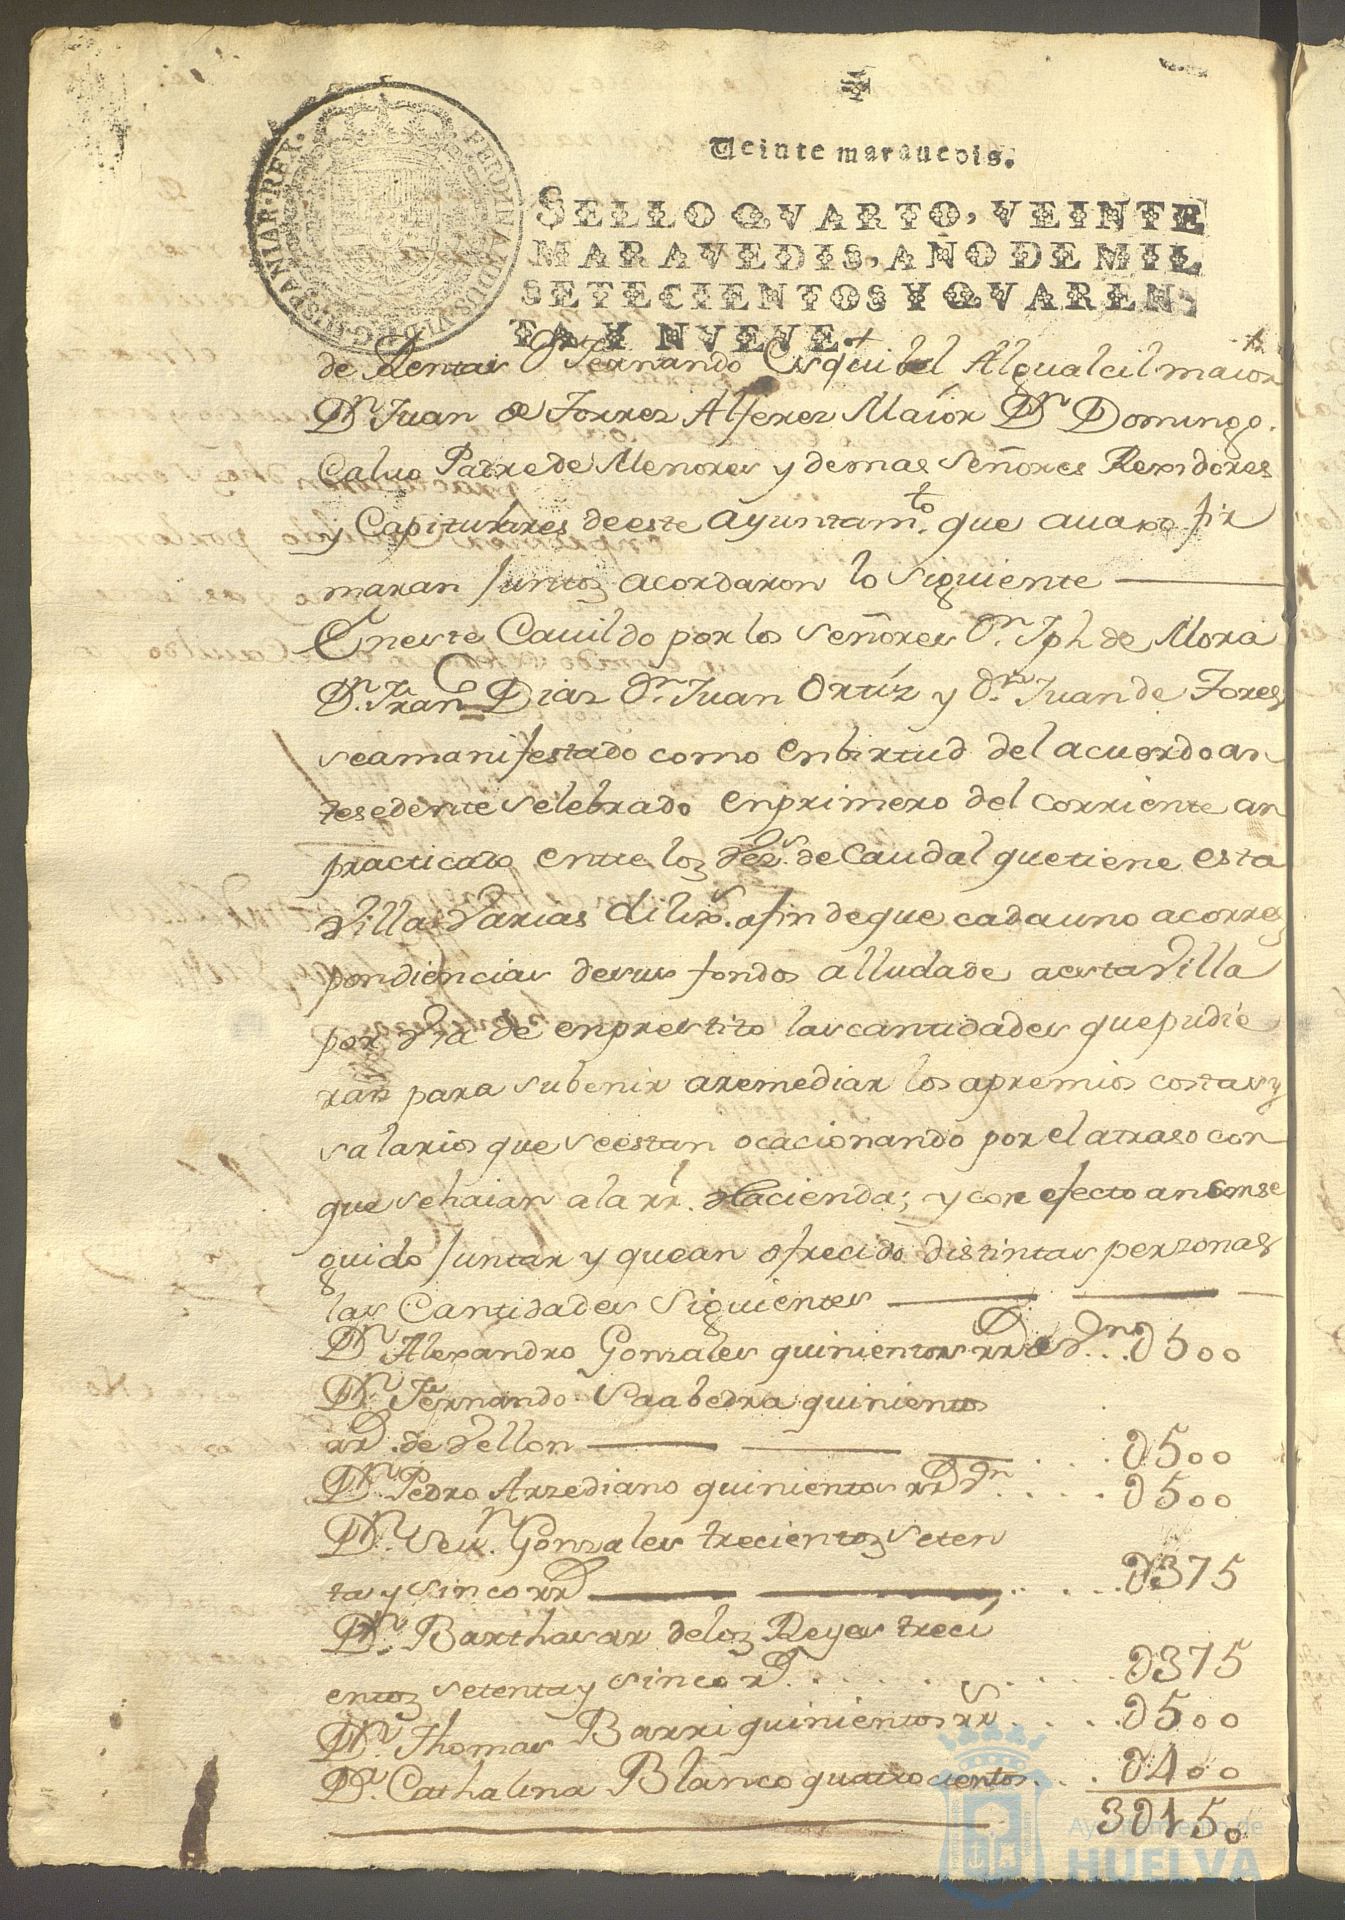 Veinte maravedis.
SELLO QVARTO, VEINTE
MARAVEDIS, AÑO DE MIL
SETECIENTOS Y QVAREN-
TA Y NVEVE.
FERDINANDUS VI D G HISPANIAR REX
de Rentas Dn Fernando Esquibel Alguacil maior
Dn. Juan de Torres Alferez Maior Dn Domingo
Calvo Padre de Menores y demas Señores Rexidores
y Capitulares de este Ayuntamto. que avaxo fir
maran Juntos acordaron lo siguiente
En este Cavildo por los Señores Dn. Jph de Mora
Dn. Franco Dias Dn. Juan Ortiz y Dn. Juan de Tores
se a manifestado como en birtud del acuerdo an
tesedente selebrado en primero del corriente an
practicado entre los Vezs. de Caudal que tiene esta
Villa Varias dilixs. a fin de que cada uno a corres
pondiencias de sus fondos alludade a esta Villa
por Via de enprestito las cantidades que pudie
ran para subenir a remediar los apremios costas y
salarios que se estan ocacionando por el atraso con
que se haian a la rl. Hacienda; y con efecto an conse
guido Juntar y que an ofrecido distintas perzonas
las Cantidades Siguientes
Dn Alexandro Gonzales quinientos rrs de Vn. D500
Dn. Fernando Saabedra quinientos
rrs. de Vellon D500
Dn. Pedro Arzediano quinientos rrs Vn D500
Dn. Sevn. Gonzales trecientos seten
ta y sinco rrs D375
Dn. Barthasar de los Reyes treci
entos setenta y sinco rs. D375
Dn. Thomas Barri quinientos rrs D500
Da. Cathalina Blanco quatrocientos D400
3D150
Ayuntamiento de
HUELVA